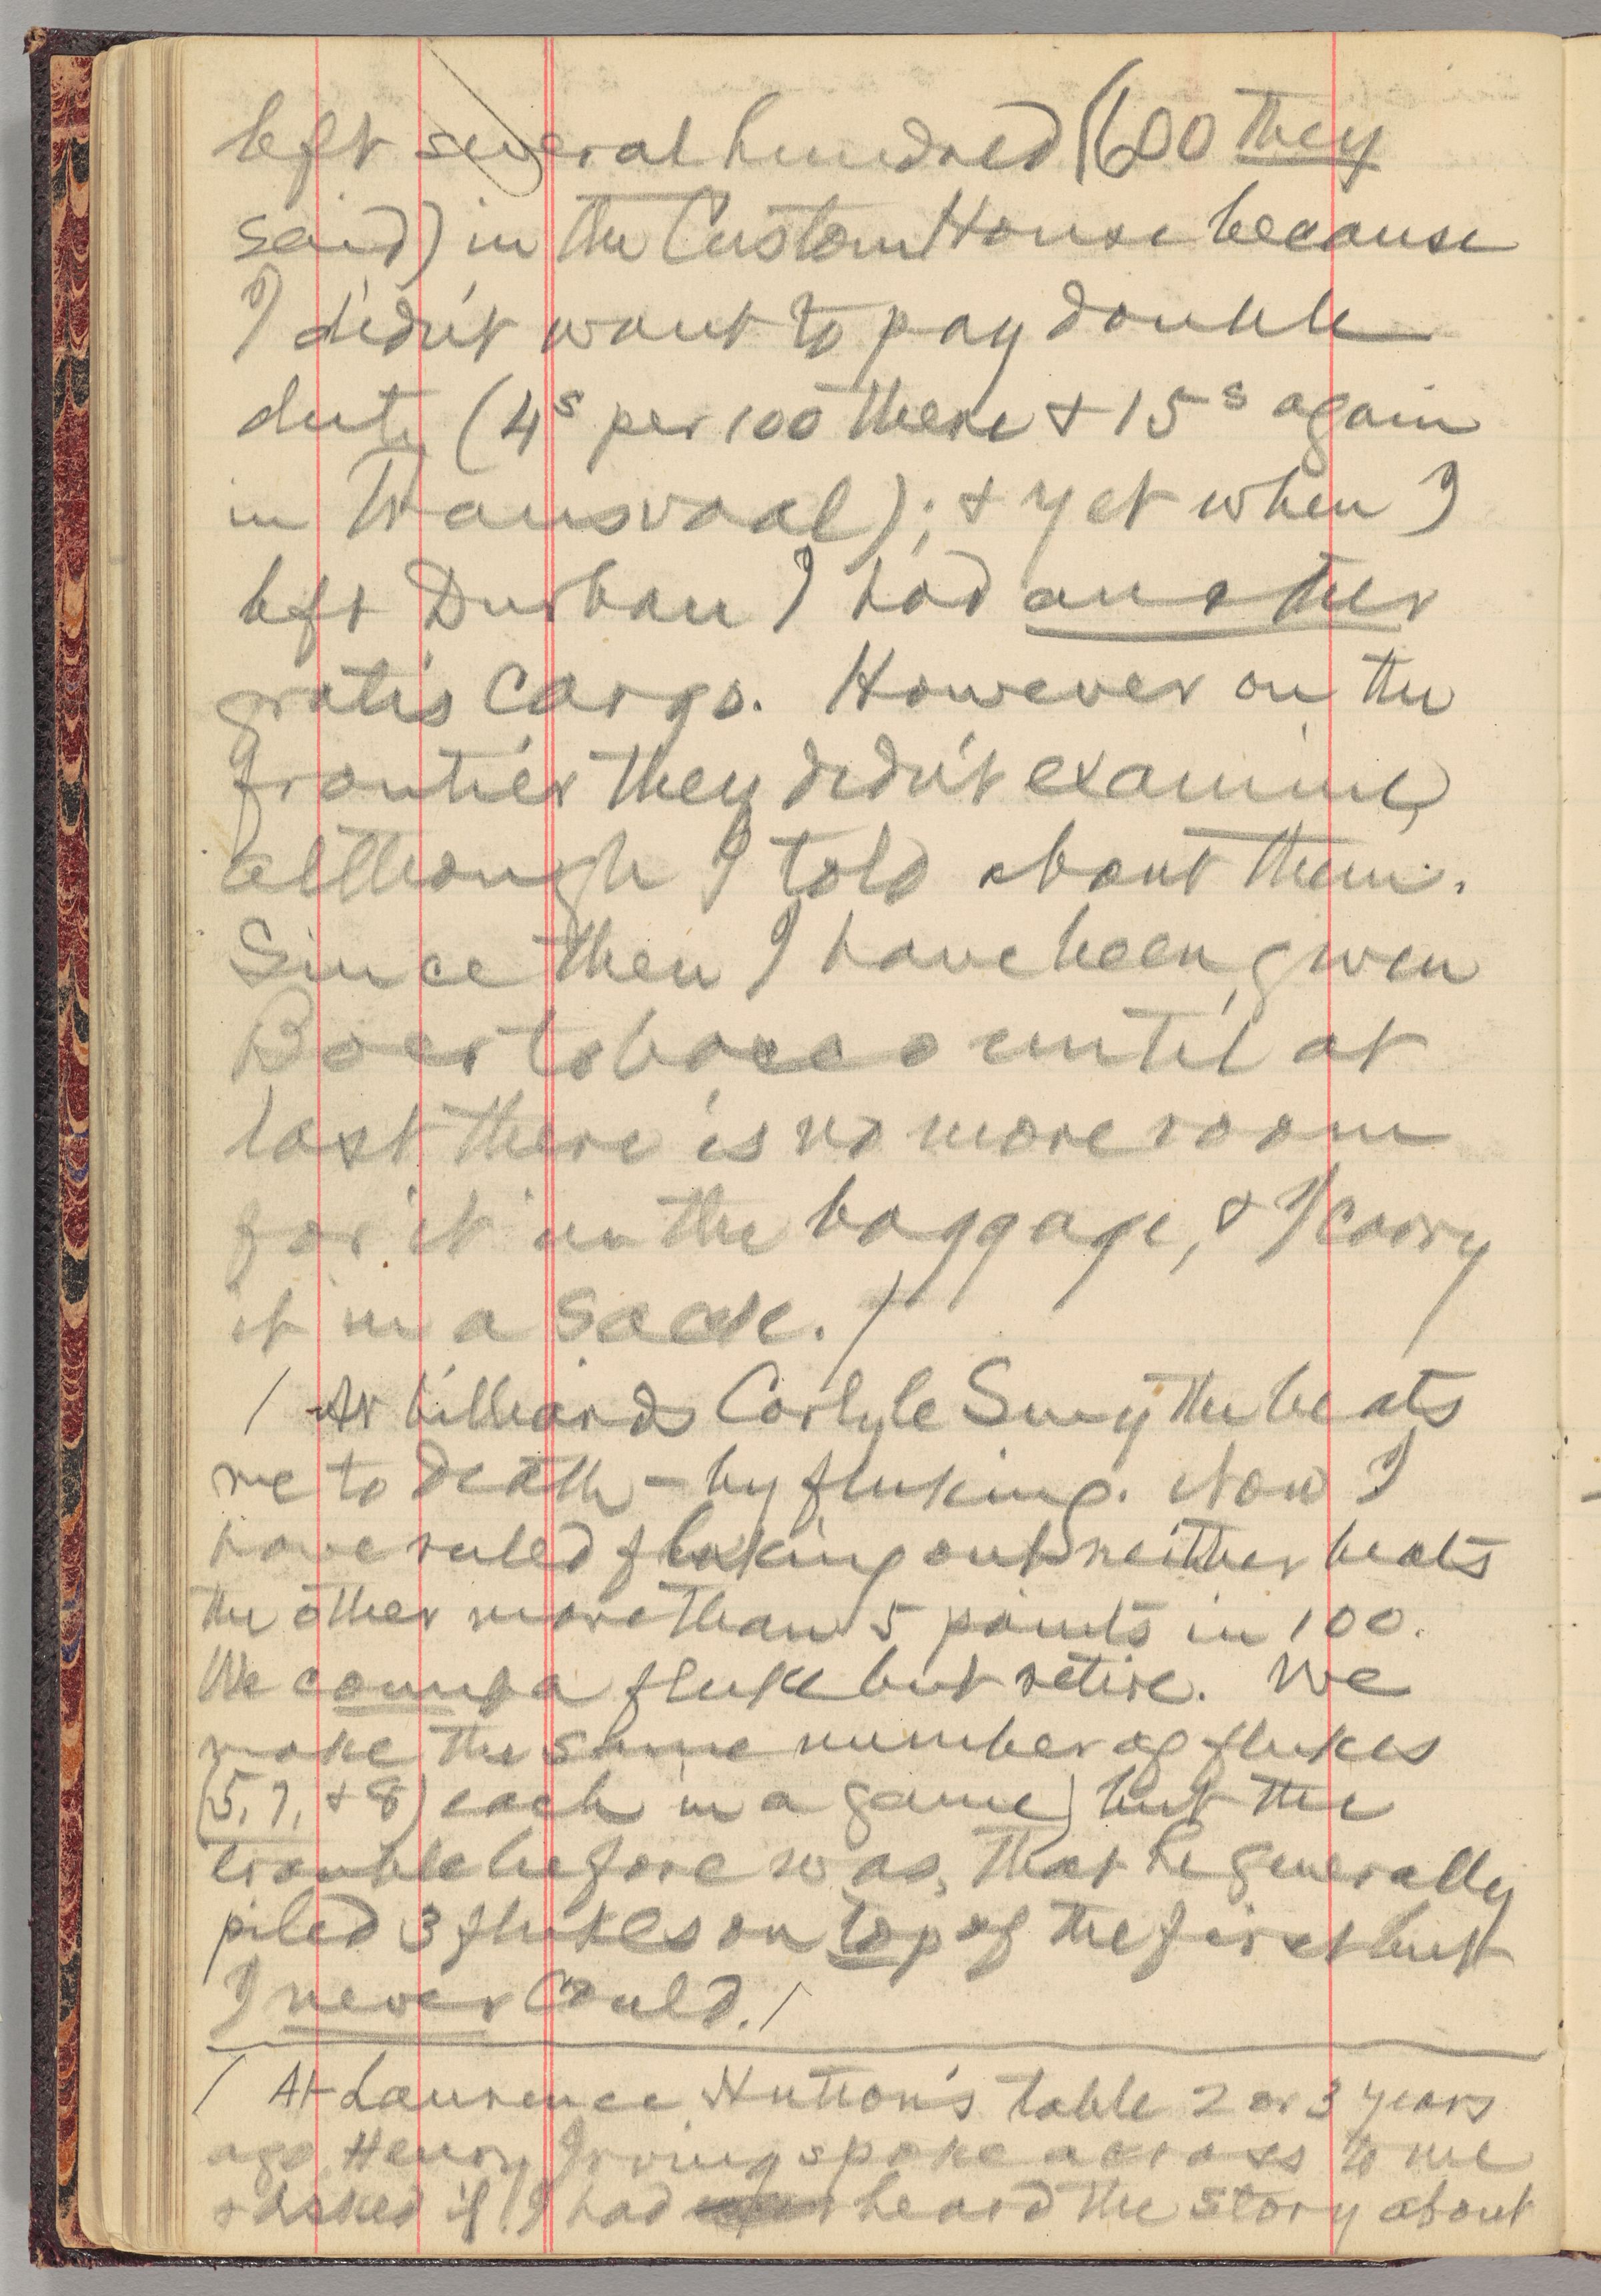 left several hundred (600 they
said) in the Custom House because
I didn't want to pay double
duty (4s per 100 there & 15s again
in Transvaal); & yet when I
left Durban I had another
gratis cargo. However on the
frontier they didn't examine,
although I told about them.
Since then I have been given
Boer tobacco until at
last there is no more room
for it in the baggage, & I carry
it in a sack. /
/ At billiards Carlyle Smythe beats
me to death – by fluking. Now I
have ruled fluking out & neither beats
the other more than 5 points in 100.
We count a fluke but retire. We
make the same number of flukes
(5, 7, & 8) each in a game) but the
trouble before was, that he generally
piled 3 flukes on top of the first but
I never could. /
/ At Laurence Hutton's table 2 or 3 years
ago Henry Irving spoke across to me
& asked if I had heard the story about